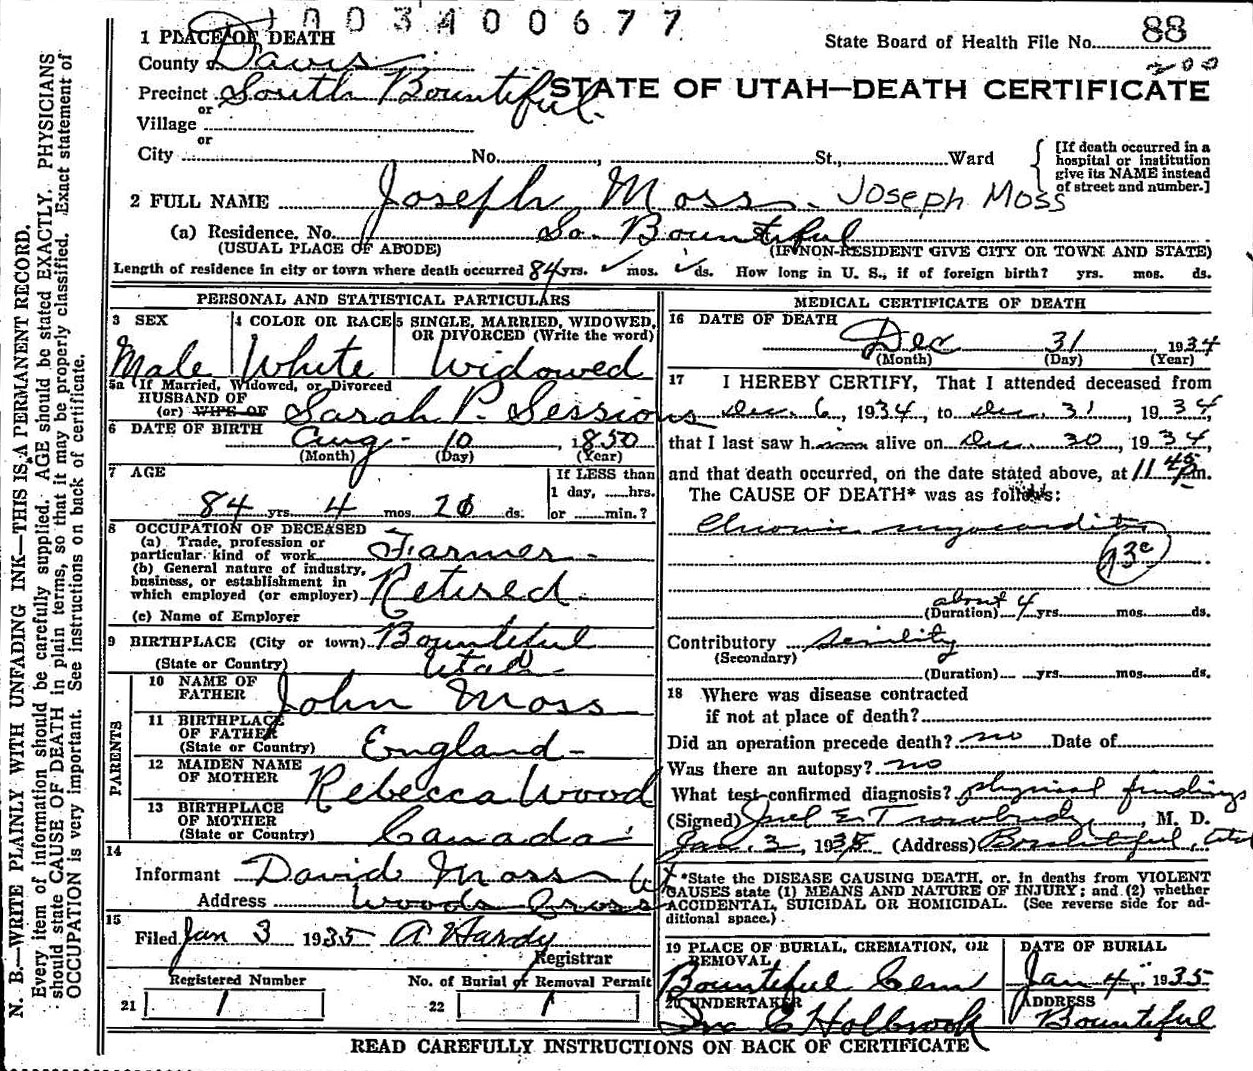 1003400677
1 PLACE OF DEATH
State Board of Health File No. 88
200
County of Davis
Precinct South Bountiful.
STATE OF UTAH—DEATH CERTIFICATE
or
Village
or
City No. , St., Ward
[If death occurred in a hospital or institution give its NAME instead of street and number.]
2 FULL NAME Joseph Moss. Joseph Moss
(a) Residence. No. So. Bountiful
(USUAL PLACE OF ABODE) (IF NON-RESIDENT GIVE CITY OR TOWN AND STATE)
Length of residence in city or town where death occurred 84 yrs. ✓ mos. ✓ ds. How long in U. S., if of foreign birth? yrs. mos. ds.
PERSONAL AND STATISTICAL PARTICULARS
3 SEX
Male
4 COLOR OR RACE
White
5 SINGLE, MARRIED, WIDOWED, OR DIVORCED (Write the word)
Widowed
5a If Married, Widowed, or Divorced
HUSBAND OF
(or) WIFE OF Sarah P. Sessions
6 DATE OF BIRTH Aug - 10, 1850
(Month) (Day) (Year)
7 AGE
84 yrs. 4 mos. ds.
If LESS than
1 day, hrs.
or min.?
8 OCCUPATION OF DECEASED
(a) Trade, profession or
particular kind of work Farmer -
(b) General nature of industry,
business, or establishment in
which employed (or employer) Retired
(c) Name of Employer
9 BIRTHPLACE (City or town) Bountiful
(State or Country) Utah -
PARENTS
10 NAME OF
FATHER John Moss
11 BIRTHPLACE
OF FATHER
(State or Country) England -
12 MAIDEN NAME
OF MOTHER Rebecca Wood
13 BIRTHPLACE
OF MOTHER
(State or Country) Canada
14
Informant David Moss
Address Woods Cross Ut
15
Filed Jan 3 1935 A Hardy
Registrar
Registered Number No. of Burial or Removal Permit
21 1 22 1
MEDICAL CERTIFICATE OF DEATH
16 DATE OF DEATH
Dec 31 1934
(Month) (Day) (Year)
17 I HEREBY CERTIFY, That I attended deceased from
Dec. 6, 1934, to Dec. 31, 1934,
that I last saw him alive on Dec. 30, 1934,
and that death occurred, on the date stated above, at 11 45 P.m.
The CAUSE OF DEATH* was as follows:
Chronic myocarditis
93c
about 4
(Duration) yrs. mos. ds.
Contributory senility
(Secondary)
(Duration) yrs. mos. ds.
18 Where was disease contracted
if not at place of death?
Did an operation precede death? no Date of
Was there an autopsy? no
What test confirmed diagnosis? physical findings
(Signed) Joel E Trowbridge, M. D.
Jan. 3, 1935 (Address) Bountiful, Utah
*State the DISEASE CAUSING DEATH, or, in deaths from VIOLENT
CAUSES state (1) MEANS AND NATURE OF INJURY; and (2) whether
ACCIDENTAL, SUICIDAL OR HOMICIDAL. (See reverse side for ad-
ditional space.)
19 PLACE OF BURIAL, CREMATION, OR
REMOVAL
Bountiful Cem
DATE OF BURIAL
Jan 4, 1935
20 UNDERTAKER
Jno E Holbrook
ADDRESS
Bountiful
READ CAREFULLY INSTRUCTIONS ON BACK OF CERTIFICATE
N. B.—WRITE PLAINLY WITH UNFADING INK—THIS IS A PERMANENT RECORD.
Every item of information should be carefully supplied. AGE should be stated EXACTLY. PHYSICIANS
should state CAUSE OF DEATH in plain terms, so that it may be properly classified. Exact statement of
OCCUPATION is very important. See instructions on back of certificate.